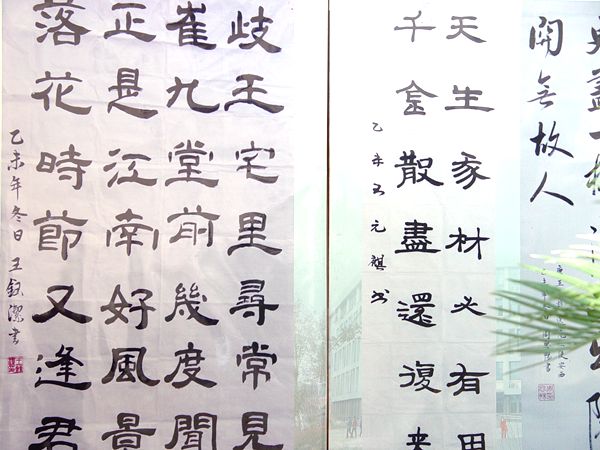 盡一杯
關無故人
天生我材必有用
千金散盡還復来
乙未 元麒书
歧王宅里尋常見
崔九堂前幾度聞
正是江南好風景
落花時節又逢君
乙未年冬日王钰潔書